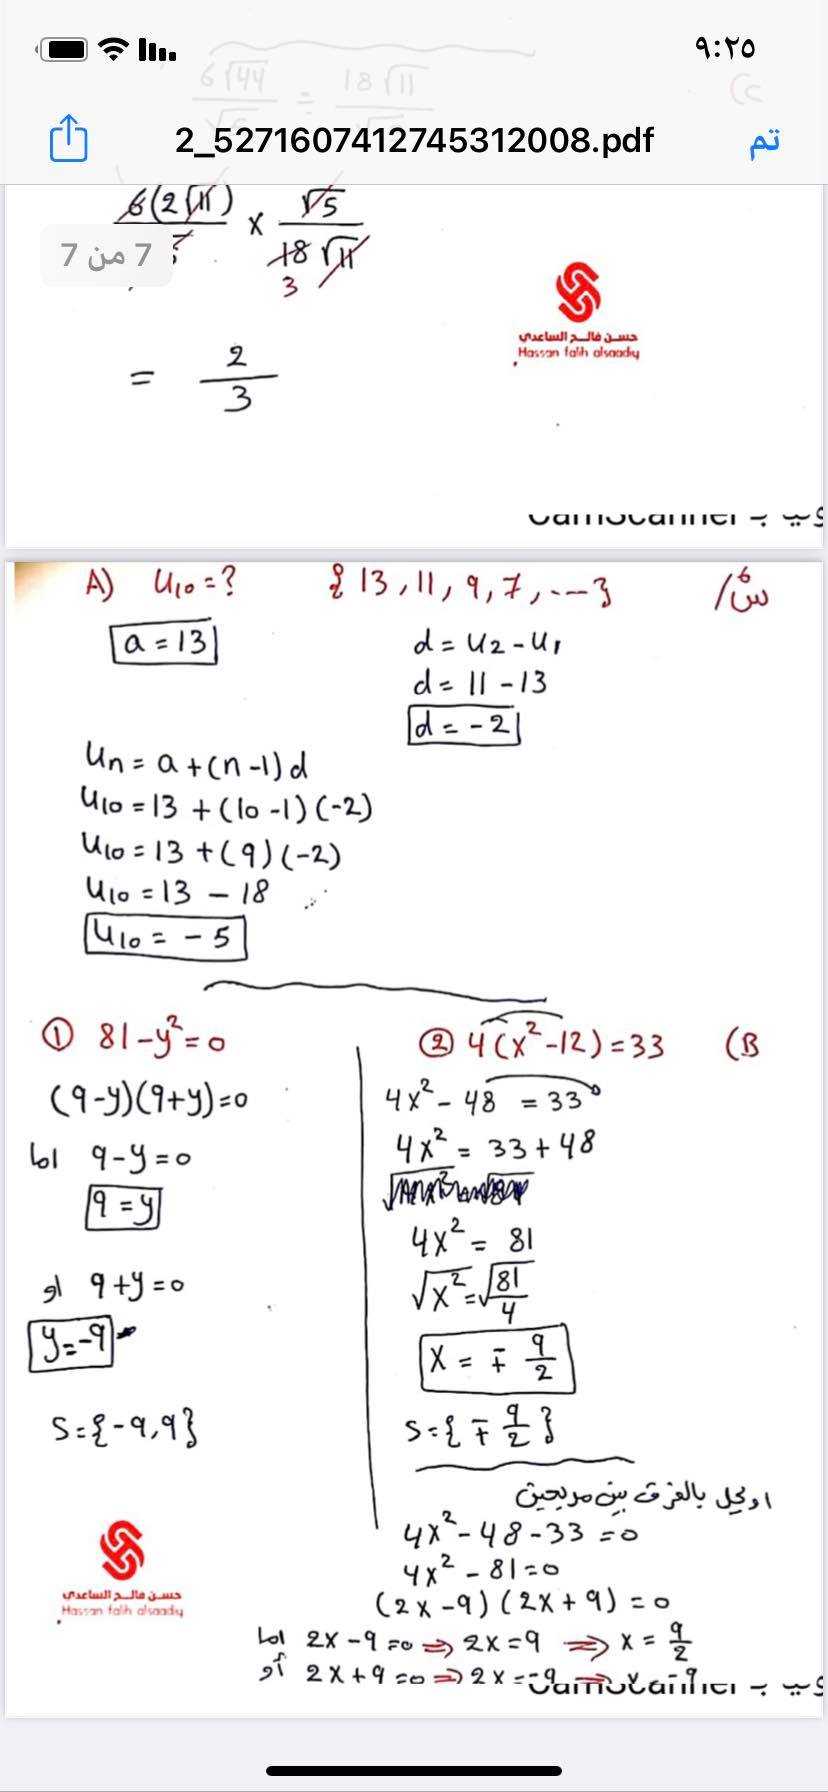 ٩:٢٥
6√44 ÷ 18√11
2_5271607412745312008.pdf
تم
7 من 7
6(2√11) × √5
18√11
3
= 2/3
حسن فالح الساعدي
Hassan falih alsaady
CamScanner
س٦/ {13, 11, 9, 7, ---}
A) U10 = ?
a = 13
d = U2 - U1
d = 11 - 13
d = -2
Un = a + (n-1)d
U10 = 13 + (10-1)(-2)
U10 = 13 + (9)(-2)
U10 = 13 - 18
U10 = -5
B)
① 81 - y² = 0
(9-y)(9+y)=0
اما 9-y=0
9 = y
او 9+y=0
y=-9
S={-9,9}
② 4(x²-12)=33
4x² - 48 = 33
4x² = 33 + 48
4x² = 81
√x² = √81/4
x = ∓ 9/2
S={∓ 9/2}
او نحل بالفرق بين مربعين
4x² - 48 - 33 = 0
4x² - 81 = 0
(2x - 9)(2x + 9) = 0
اما 2x - 9 = 0 ⇒ 2x = 9 ⇒ x = 9/2
أو 2x + 9 = 0 ⇒ 2x = -9 ⇒
حسن فالح الساعدي
Hassan falih alsaady
CamScanner